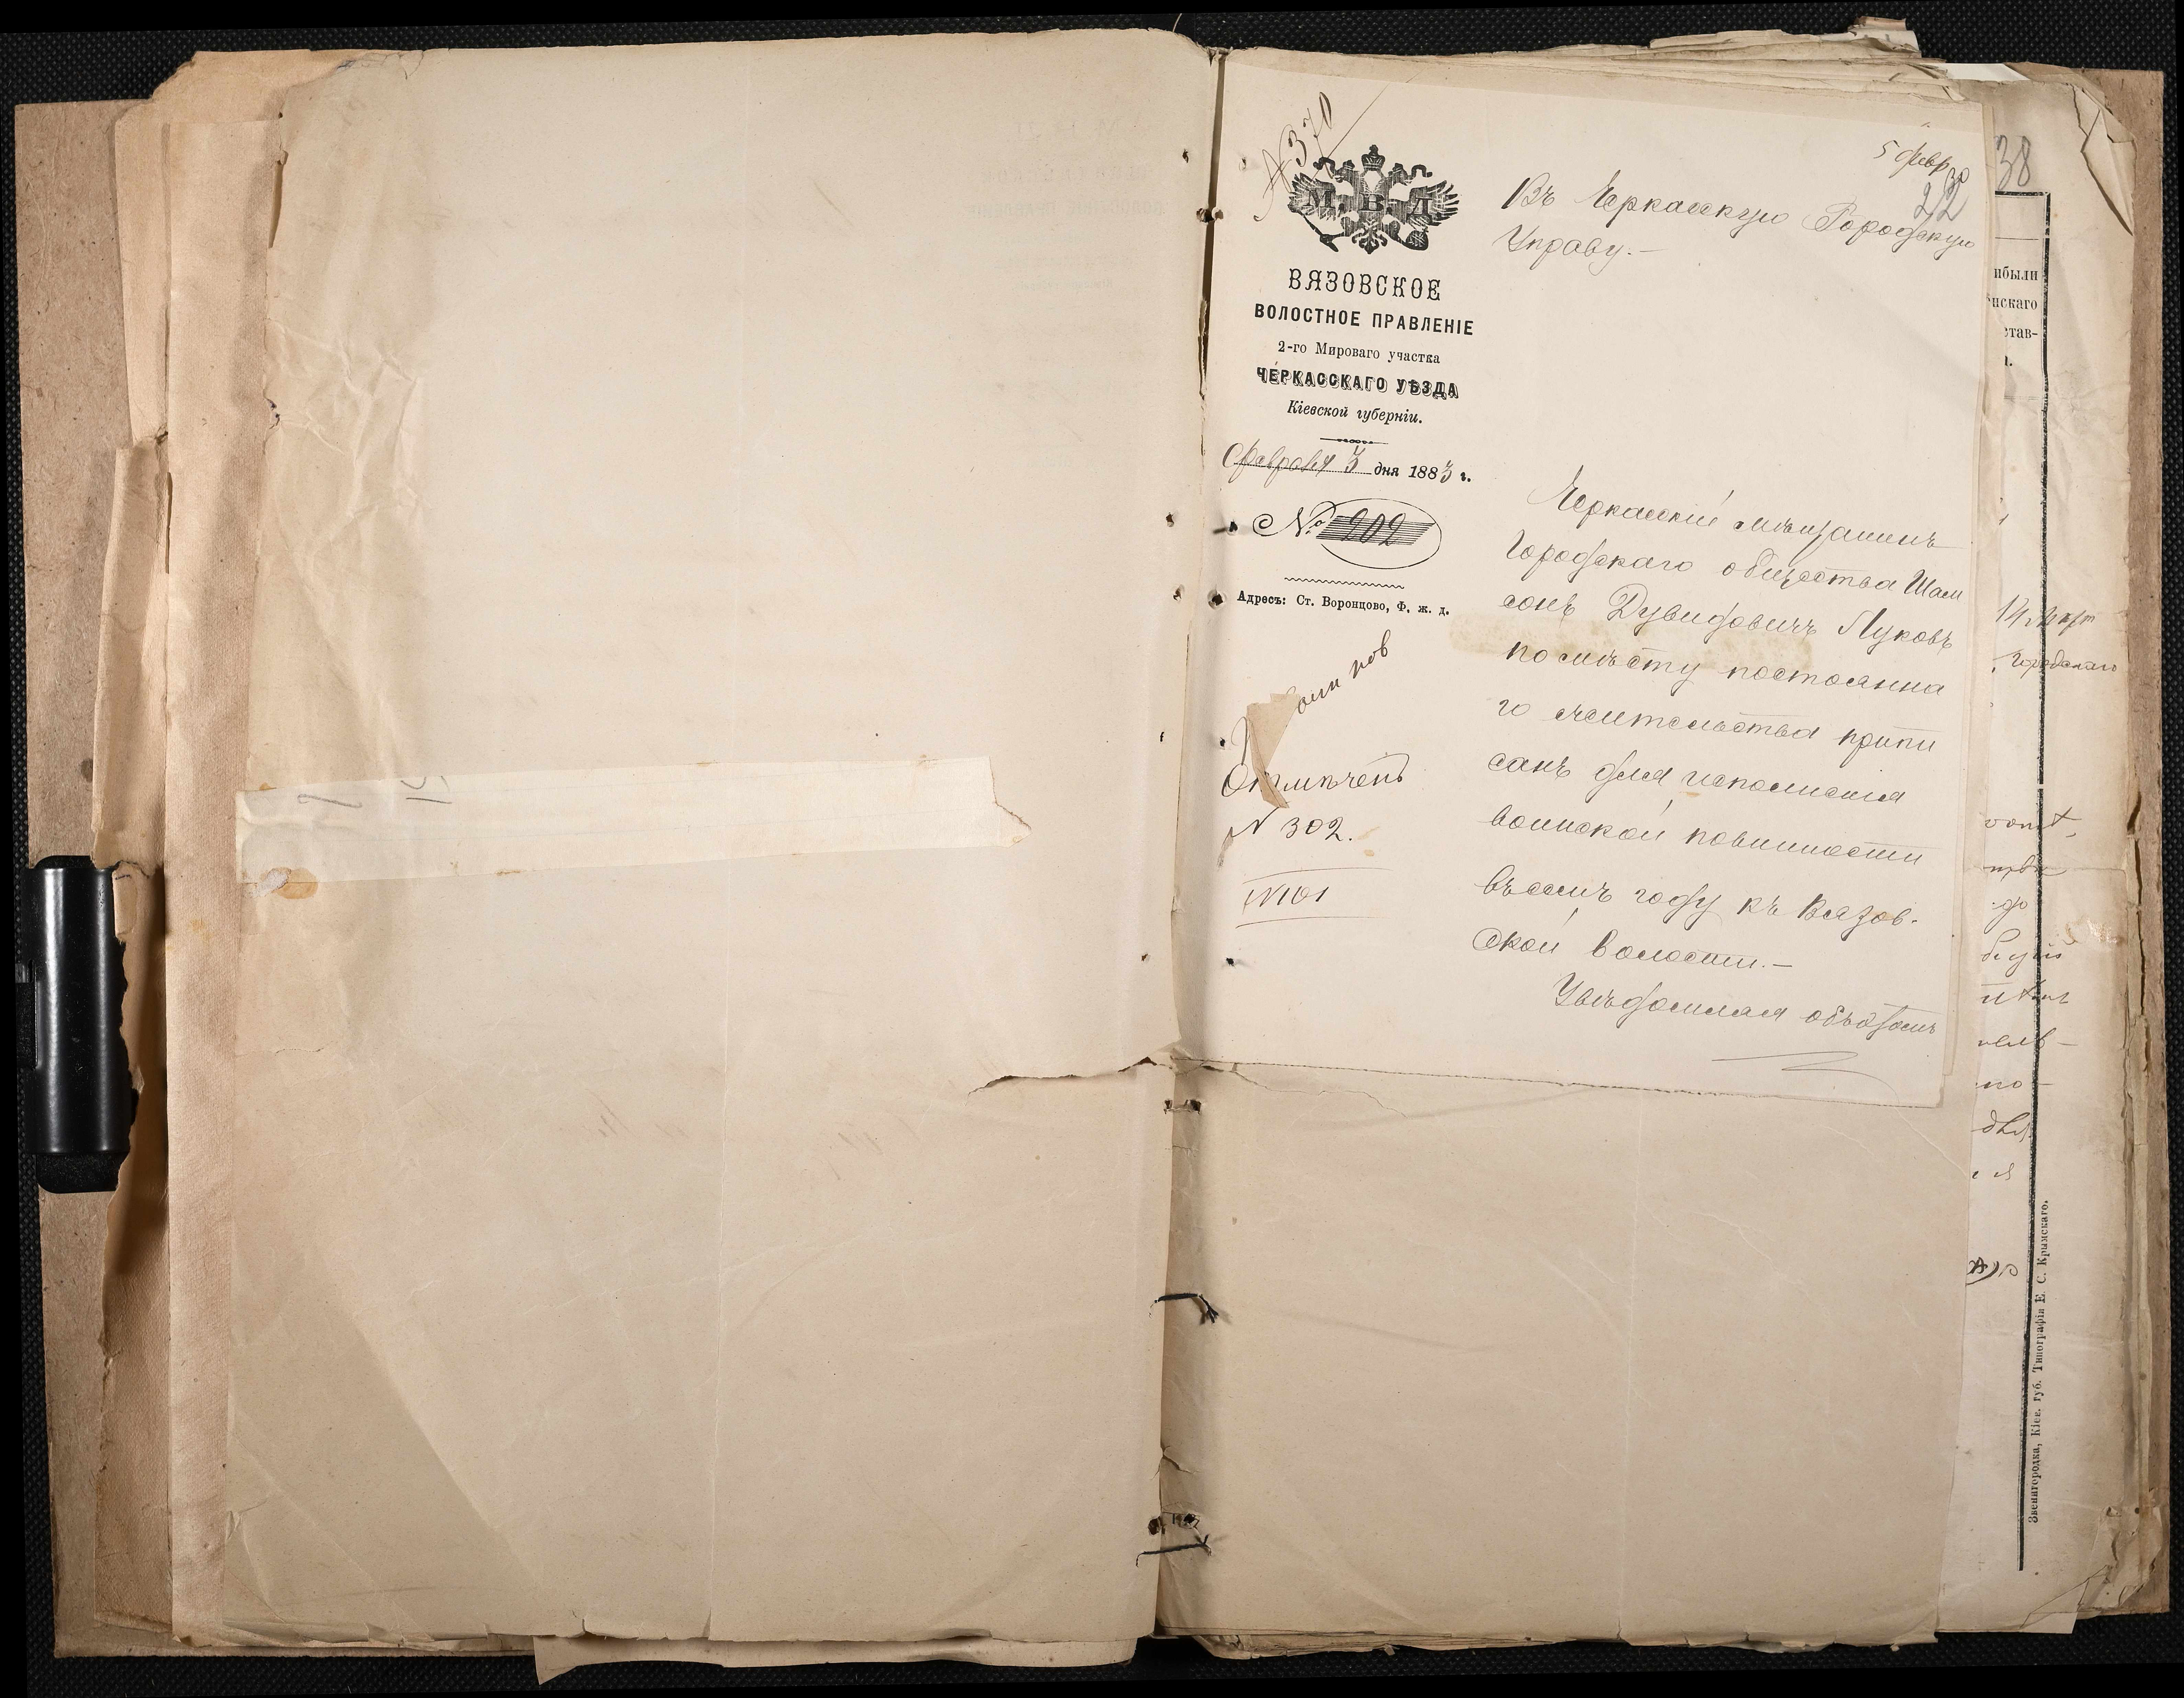 № 370
5 февр
30
22
38
М. В. Д.
ВЯЗОВСКОЕ
ВОЛОСТНОЕ ПРАВЛЕНІЕ
2-го Мироваго участка
ЧЕРКАССКАГО УѢЗДА
Кіевской губерніи.
Февраля 3 дня 1883 г.
№ 202
Адресъ: Ст. Воронцово, Ф. ж. д.
Отмѣчено
№ 302.
№101
Въ Черкасскую Городскую
Управу.—
Черкасскій мѣщанинъ
Городскаго общества Шам
сонъ Дувидовичъ Луковъ
по мѣсту постоянна
го жительства припи
санъ для исполненія
воинской повинности
въ семъ году къ Вязов-
ской волости.—
Увѣдомляя объ этомъ
ибыли
нскаго
став-
Городскаго
до
но—
Звенигородка, Кіев. губ. Типографія Е. С. Крымскаго.